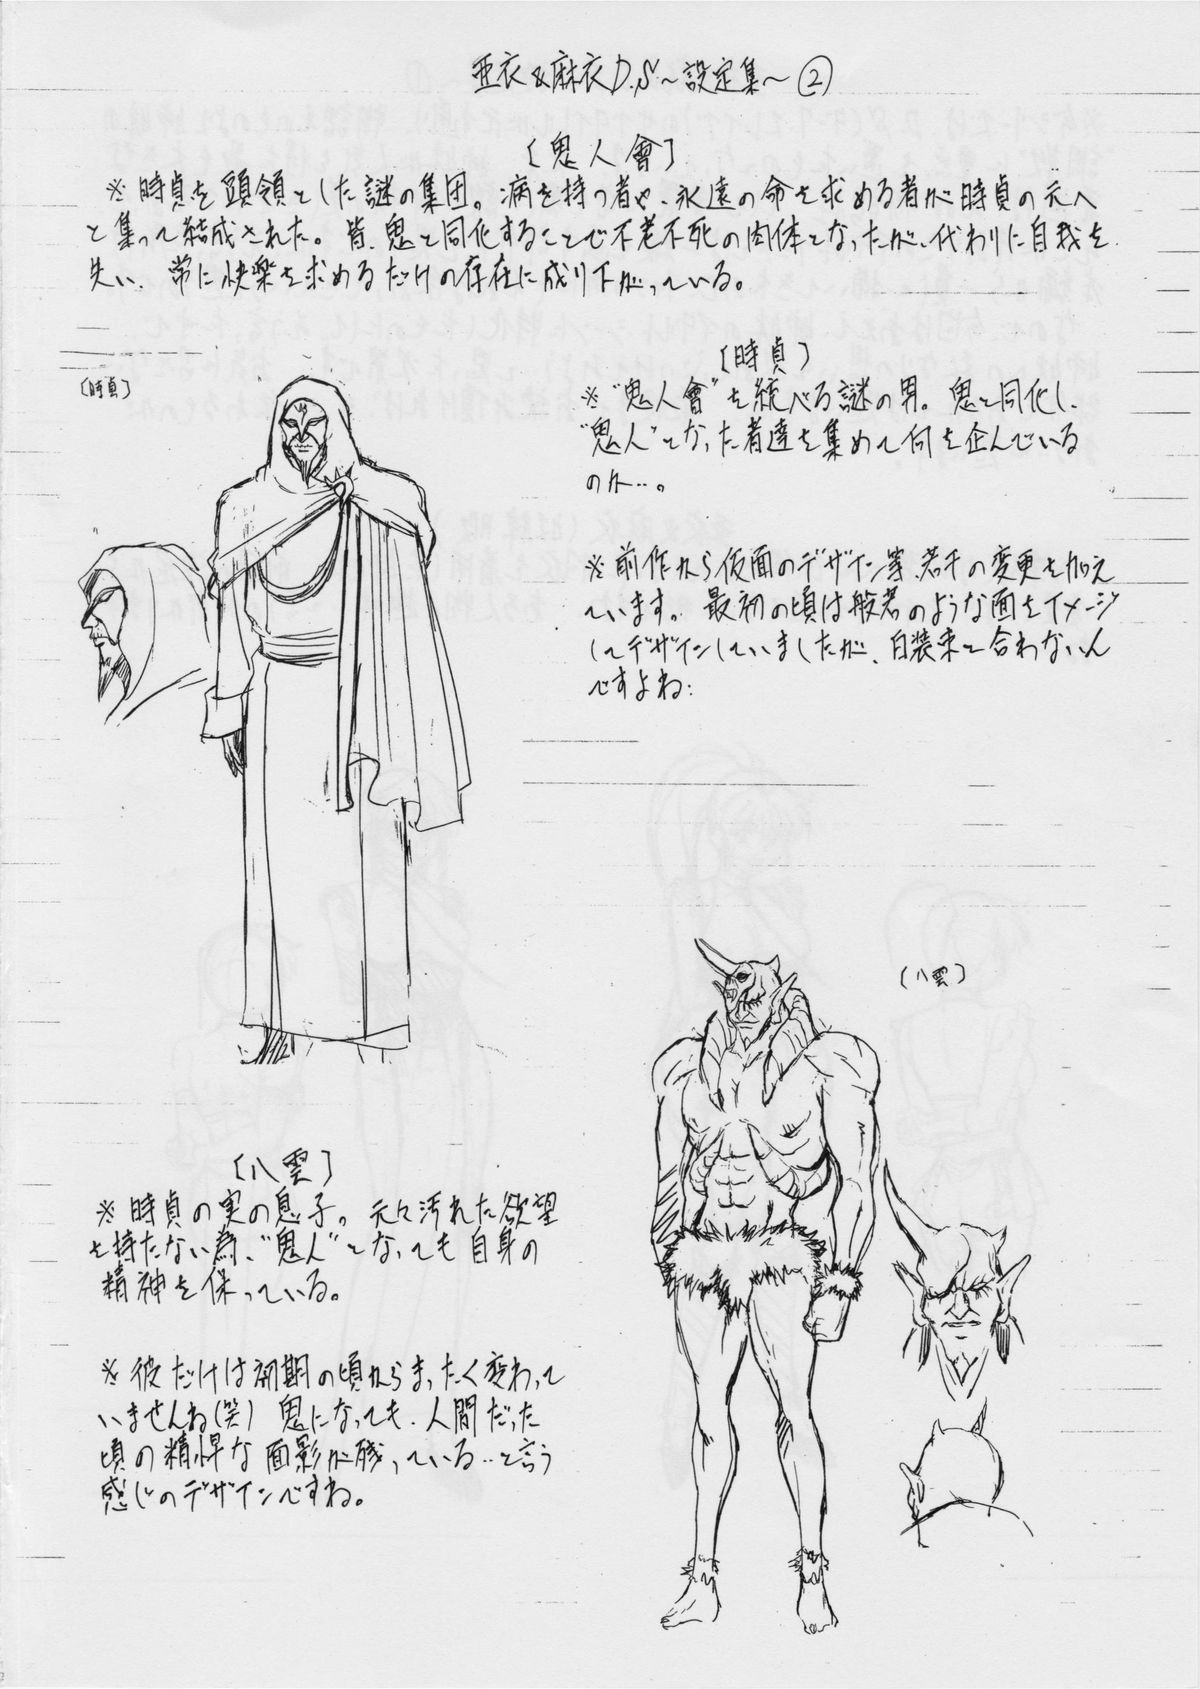 亜衣&麻衣D.S〜設定集〜②
〔鬼人會〕
※時貞を頭領とした謎の集団。病を持つ者や、永遠の命を求める者が時貞の元へ
と集って結成された。皆、鬼と同化することで不老不死の肉体となったが、代わりに自我を
失い、常に快楽を求めるだけの存在に成り下がっている。
〔時貞〕
〔時貞〕
※“鬼人會”を統べる謎の男。鬼と同化し、
“鬼人”となった者達を集めて何を企んでいる
のか…。
※前作から仮面のデザイン等、若干の変更を加え
ています。最初の頃は般若のような面をイメージ
してデザインしていましたが、白装束と合わないん
ですよね:
〔八雲〕
〔八雲〕
※時貞の実の息子。元々汚れた欲望
を持たない為、“鬼人”となっても自身の
精神を保っている。
※彼だけは初期の頃からまったく変わって
いませんね(笑) 鬼になっても、人間だった
頃の精悍な面影が残っている‥と言う
感じのデザインですね。